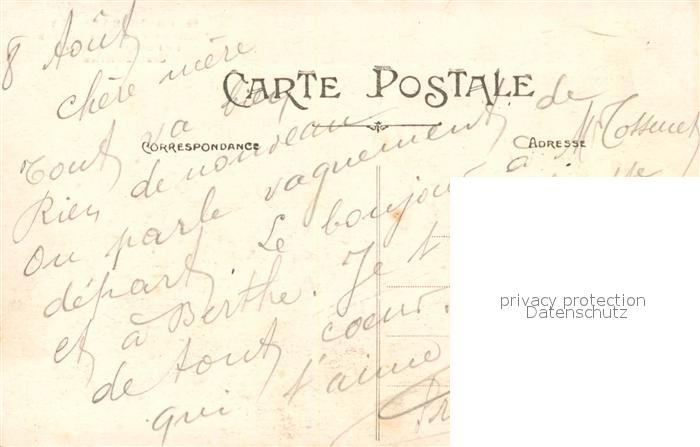 8 Août
CARTE POSTALE
chère mère
CORRESPONDANCE
ADRESSE
Tout va bien
Rien de nouveau
On parle vaguement de
départ. Le bonjour à M
et à Berthe. Je t
de tout coeur.
qui t'aime
privacy protection
Datenschutz